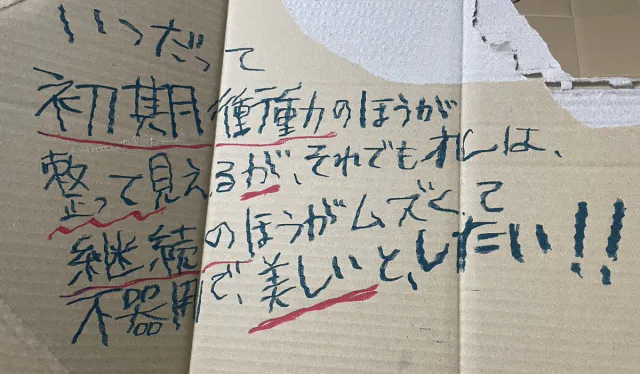 いつだって
初期衝動のほうが
整って見えるが、それでもオレは、
継続のほうがムズくて
不器用で、美しいと、したい!!